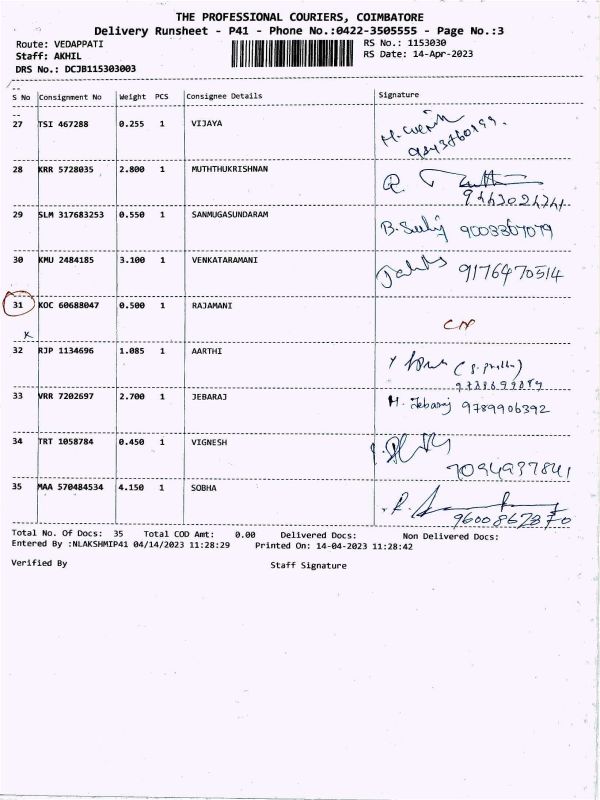 THE PROFESSIONAL COURIERS, COIMBATORE
Delivery Runsheet - P41 - Phone No.:0422-3505555 - Page No.:3
Route: VEDAPPATI RS No.: 1153030
Staff: AKHIL RS Date: 14-Apr-2023
DRS No.: DCJB115303003
S No Consignment No Weight PCS Consignee Details Signature
27 TSI 467288 0.255 1 VIJAYA
28 KRR 5728035 2.800 1 MUTHTHUKRISHNAN
R.
29 SLM 317683253 0.550 1 SANMUGASUNDARAM
30 KMU 2484185 3.100 1 VENKATARAMANI 9176470514
31 KOC 60688047 0.500 1 RAJAMANI
x
32 RJP 1134696 1.085 1 AARTHI
33 VRR 7202697 2.700 1 JEBARAJ M. Jebaraj 9789906392
34 TRT 1058784 0.450 1 VIGNESH
7094937841
35 MAA 570484534 4.150 1 SOBHA
9600862870
Total No. Of Docs: 35 Total COD Amt: 0.00 Delivered Docs: Non Delivered Docs:
Entered By :NLAKSHMIP41 04/14/2023 11:28:29 Printed On: 14-04-2023 11:28:42
Verified By Staff Signature